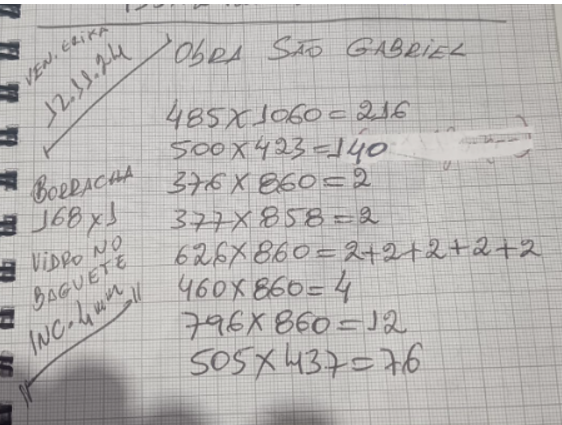 OBRA SÃO GABRIEL
VEN. ERIKA
12.11.24
485X1060=216
500X423=140
376X860=2
377X858=2
626X860=2+2+2+2+2
460X860=4
796X860=12
505X437=76
BORRACHA
168X1
VIDRO NO
BAGUETE
INC. 4mm